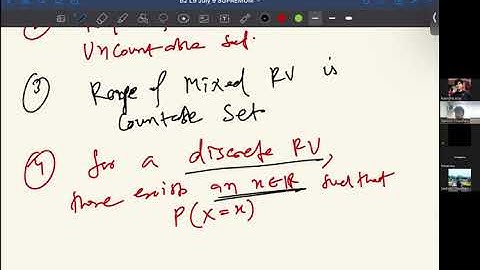 B2 L9 July 9 SUPREMUM
②
Uncountable Set.
③ Range of Mixed RV is
Countable Set
④ for a discrete RV,
there exists an x∈ℝ such that
P(X=x)